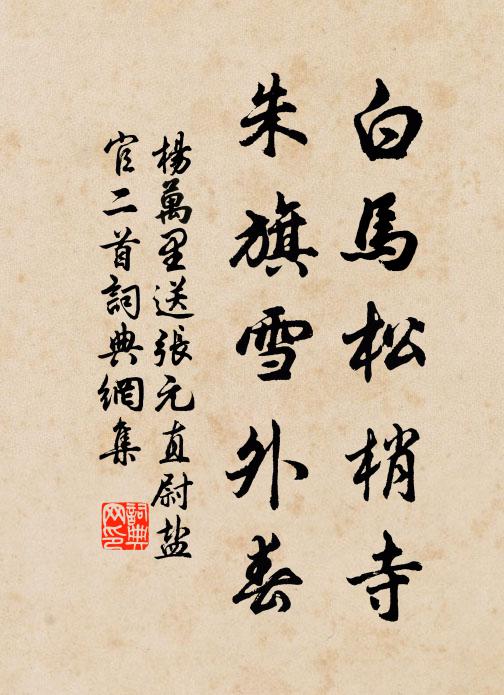 白馬松梢寺
朱旗雪外春
楊萬里送張元直尉盐
官二首詞典網集
詞典网印